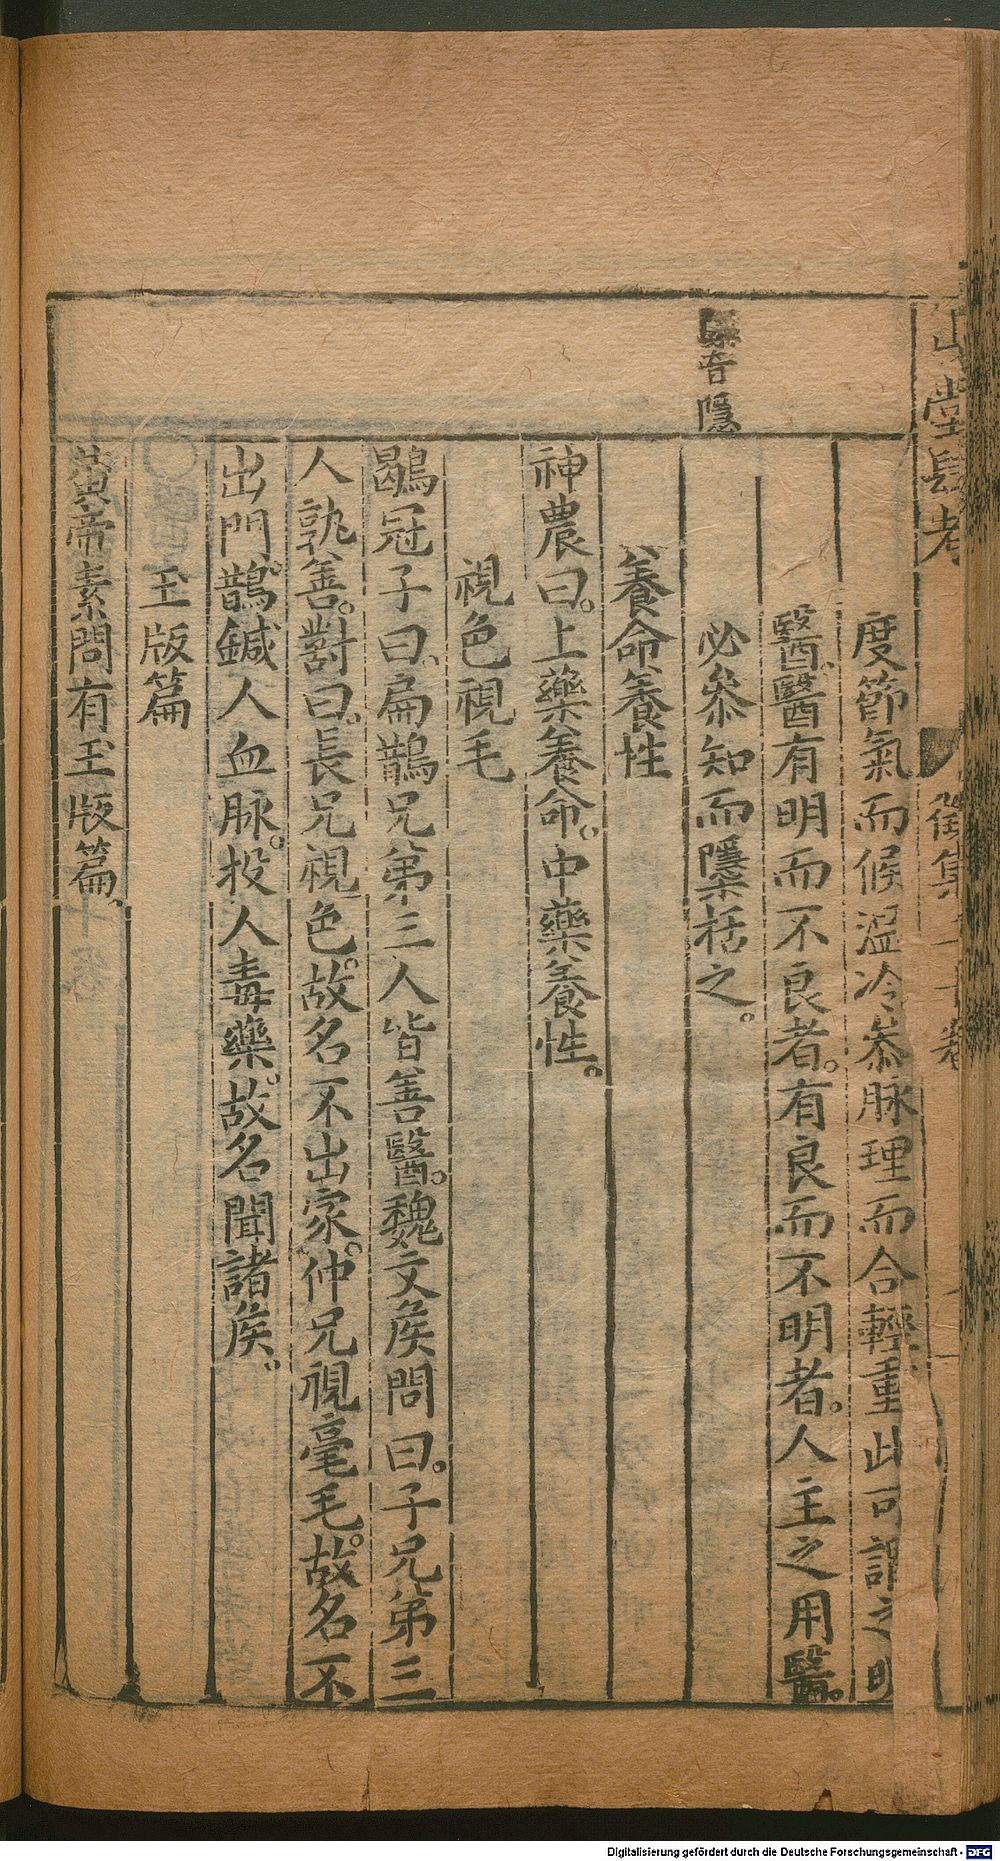 山堂肆考
徵集 卷
㯶音隱
度節氣而候溫冷叅脉理而合輕重此可謂之明
醫醫有明而不良者。有良而不明者。人主之用醫。
必叅知而㯶括之。
養命養性
神農曰。上藥養命。中藥養性。
視色視毛
鶡冠子曰。扁鵲兄弟三人皆善醫。魏文侯問曰。子兄弟三
人孰善。對曰。長兄視色。故名不出家。仲兄視毫毛。故名不
出門。鵲鍼人血脉。投人毒藥。故名聞諸侯。
玉版篇
黃帝素問有玉版篇。
Digitalisierung gefördert durch die Deutsche Forschungsgemeinschaft - DFG